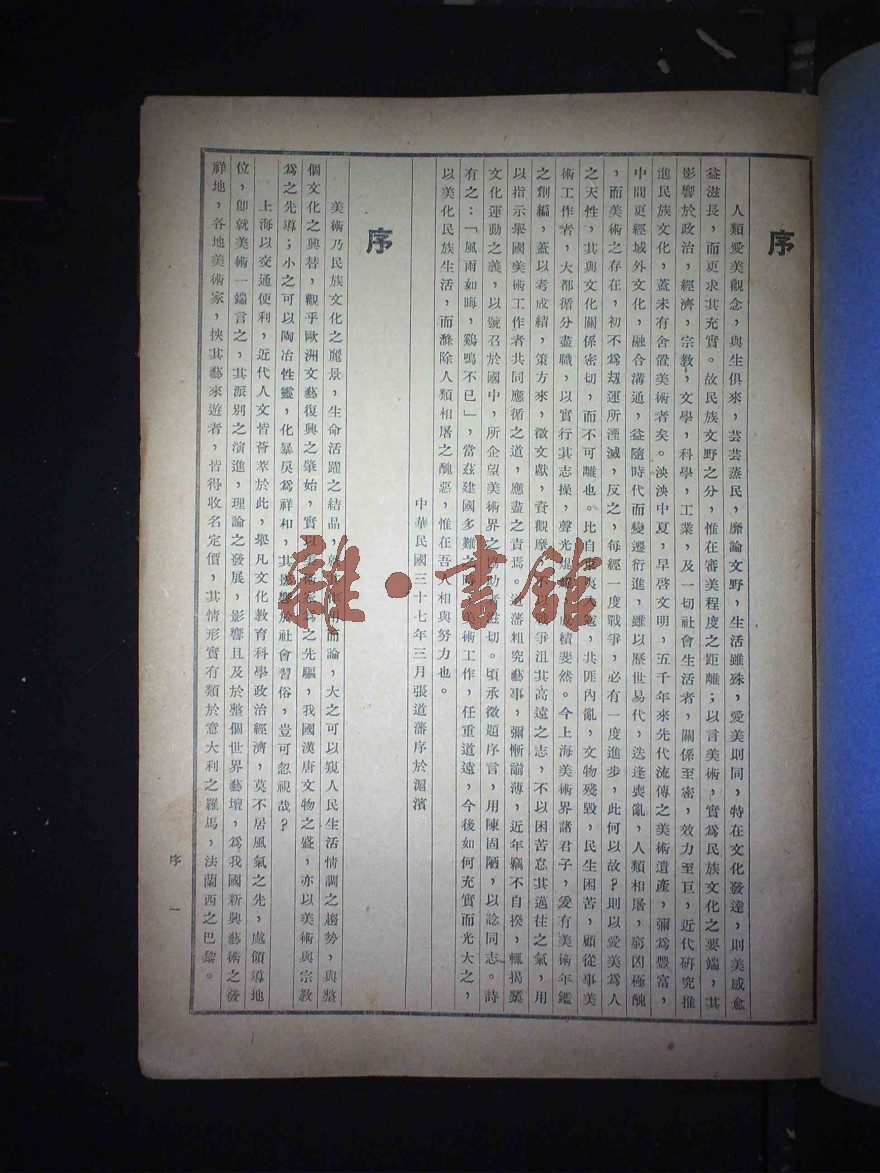 序
人類愛美觀念，與生俱來，芸芸蒸民，靡論文野，生活雖殊，愛美則同，特在文化發達，則美感愈
益滋長，而更求其充實。故民族文野之分，惟在審美程度之距離；以言美術，實爲民族文化之要端，其
影響於政治，經濟，宗教，文學，科學，工業，及一切社會生活者，關係至密，效力至巨，近代研究推
進民族文化，蓋未有舍置美術者矣。泱泱中夏，早啓文明，五千年來先代流傳之美術遺產，彌爲豐富，
中間更經域外文化，融合溝通，益隨時代而變遷衍進，雖以歷世易代，迭逢喪亂，人類相屠，窮凶極醜
，而美術之存在，初不爲刼運所湮滅，反之，每經一度戰爭，必有一度進步，此何以故？則以愛美爲人
之天性，其與文化關係密切，而不可離也。比自寇，共匪內亂，文物殘毀，民生困苦，顧從事美
術工作者，大都循分盡職，以實行其志操，聲光成績斐然。今上海美術界諸君子，爰有美術年鑑
之創編，蓋以考成績，策方來，徵文獻，資觀摩，不爭沮其高遠之志，不以困苦怠其邁往之氣，用
以指示舉國美術工作者共同應循之道，應盡之責焉。道藩粗究藝事，彌慚譾薄，近年竊不自揆，輒揭櫫
文化運動之義，以號召於國中，所企望美術界之助者切。頃承徵題序言，用陳固陋，以諗同志。詩
有之：「風雨如晦，鷄鳴不已」，當茲建國多難之術工作，任重道遠，今後如何充實而光大之，
以美化民族生活，而滌除人類相屠之醜惡，惟在吾相與努力也。
中華民國三十七年三月張道藩序於滬濱
序
美術乃民族文化之麗景，生命活躍之結晶，而論，大之可以窺人民生活情調之趨勢，與整
個文化之興替，觀乎歐洲文藝復興之肇始，實以爲之先驅，我國漢唐文物之盛，亦以美術與宗教
爲之先導；小之可以陶冶性靈，化暴戾爲祥和，其影響於社會習俗，豈可忽視哉？
上海以交通便利，近代人文皆薈萃於此，舉凡文化教育科學政治經濟，莫不居風氣之先，處領導地
位，卽就美術一端言之，其派別之演進，理論之發展，影響且及於整個世界藝壇，爲我國新興藝術之發
祥地，各地美術家，挾其藝來遊者，皆得收名定價，其情形實有類於意大利之羅馬，法蘭西之巴黎。
序 一
雜·書館